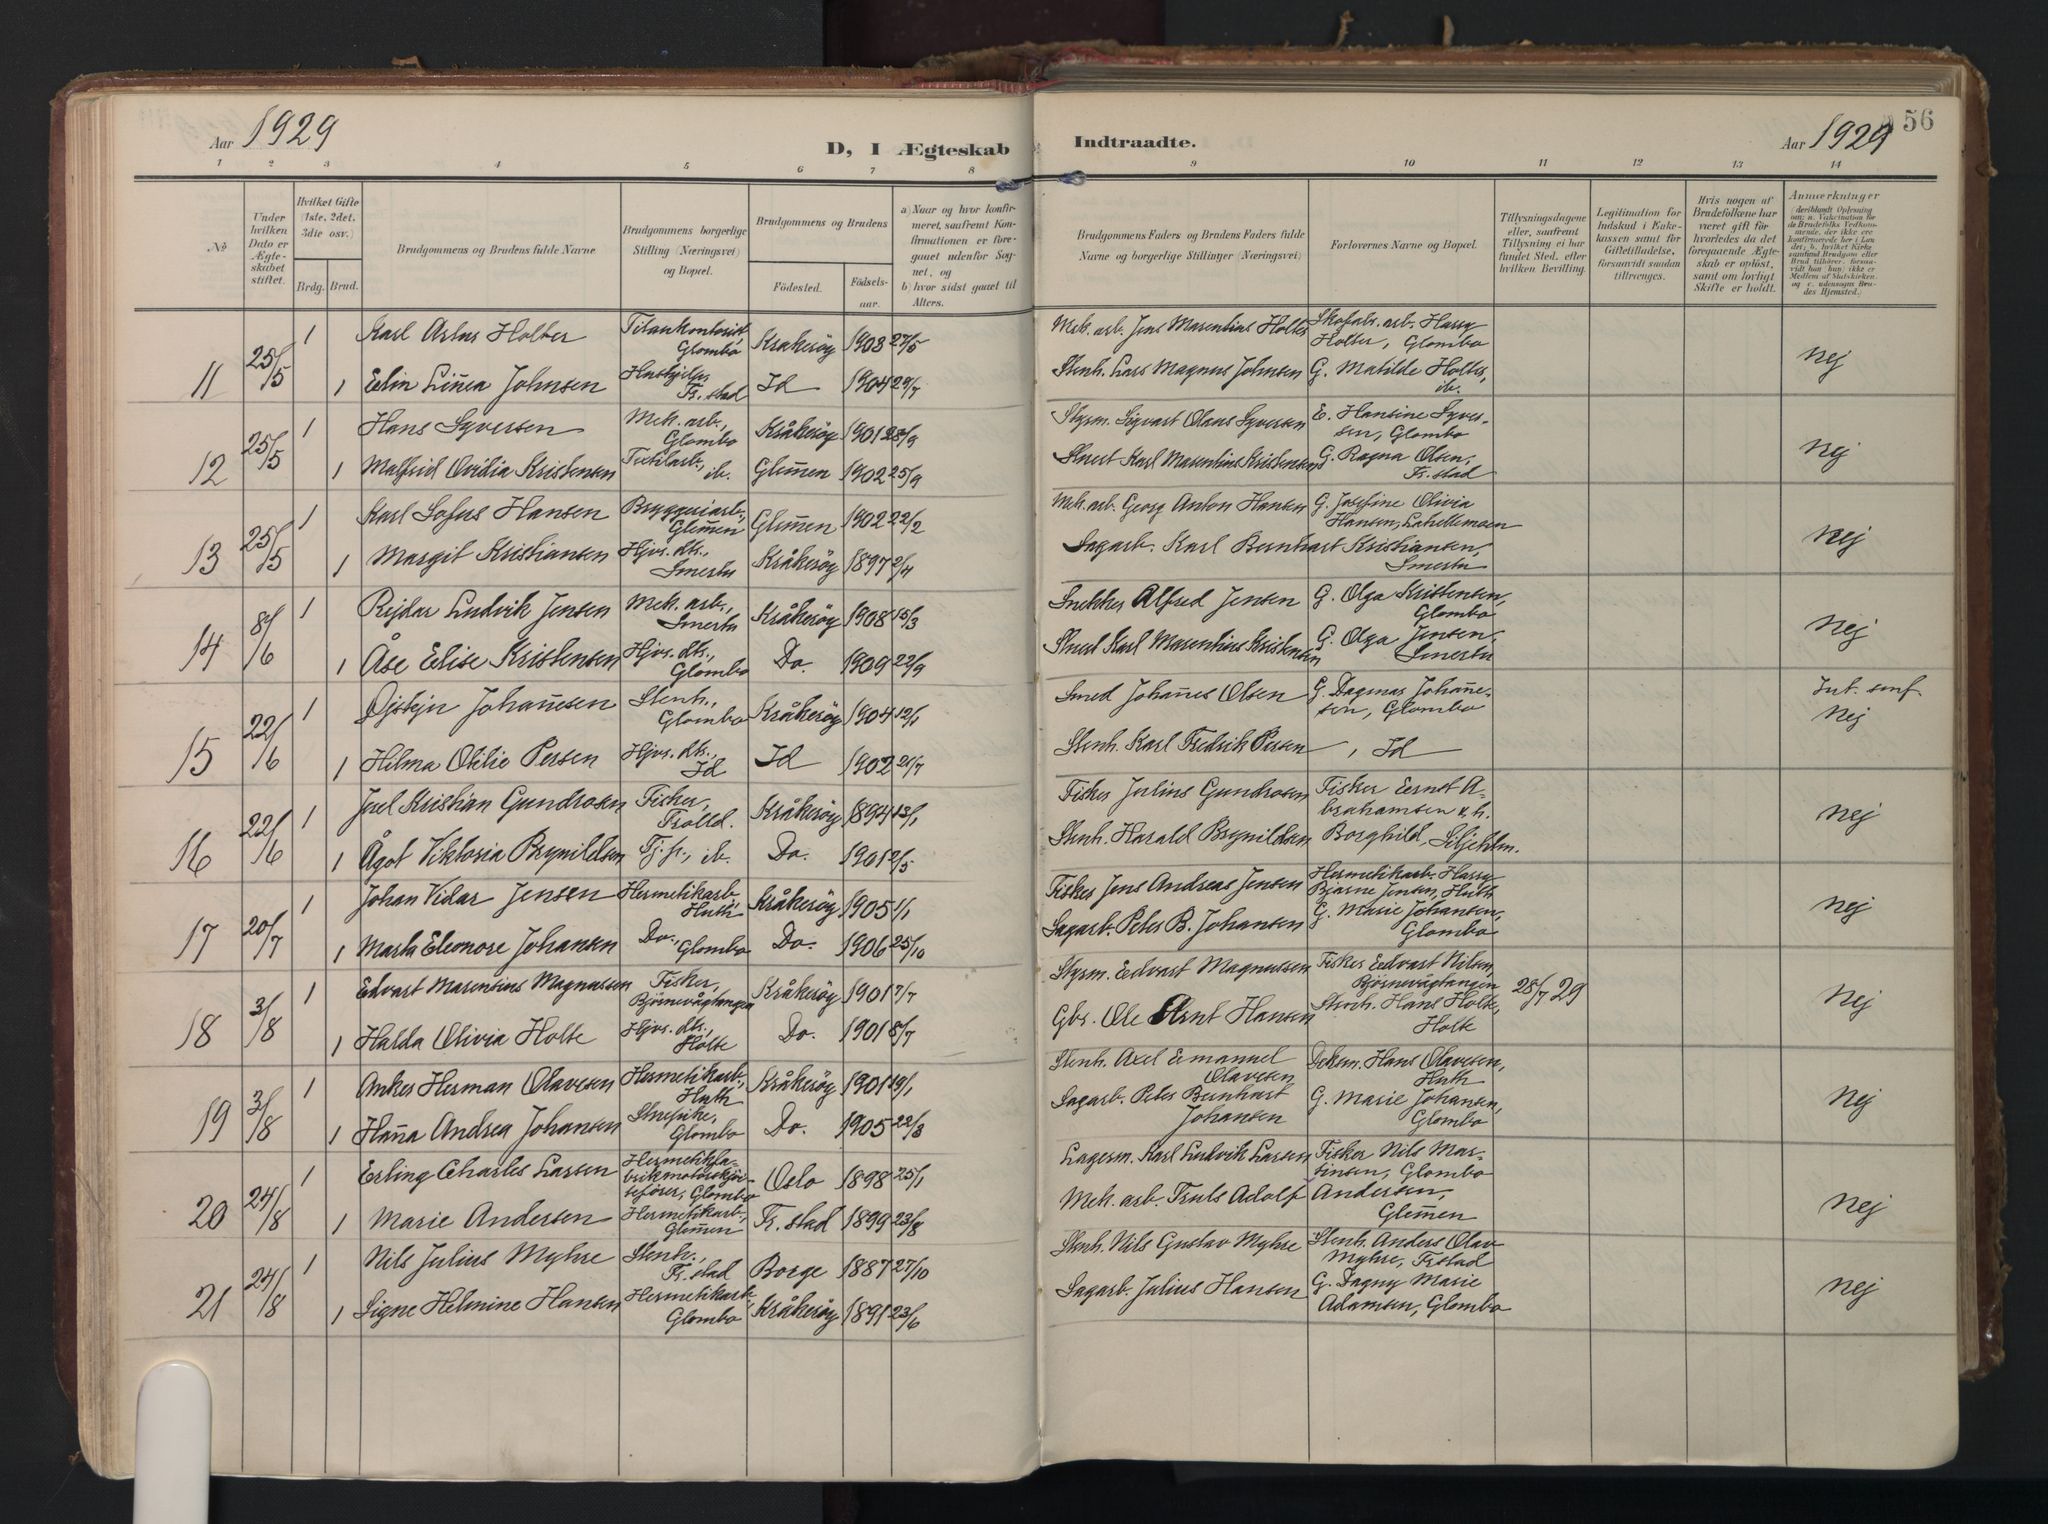 Aar 1929
D, I Ægteskab
Indtraadte.
Aar 1929
56
1 2 3 4 5 6 7 8 9 10 11 12 13 14
No
Under hvilken Dato er Ægteskabet stiftet.
Hvilket Gifte (1ste, 2det, 3die osv.)
Brdg. Brud.
Brudgommens og Brudens fulde Navne
Brudgommens borgerlige Stilling (Næringsvei) og Bopæl.
Brudgommens og Brudens
Födested.
Födsels-aar.
a) Naar og hvor konfirmeret, saafremt Konfirmationen er foregaaet udenfor Sognet, og
b) hvor sidst gaaet til Alters.
Brudgommens Faders og Brudens Faders fulde Navne og borgerlige Stillinger (Næringsvei)
Forlovernes Navne og Bopæl.
Tillysningsdagene eller, saafremt Tillysning ei har fundet Sted, efter hvilken Bevilling.
Legitimation for Indskud i Enkekassen samt for Giftetilladelse, forsaavidt saadan tiltrænges.
Hvis nogen af Brudefolkene har været gift för hvorledes da det foregaaende Ægteskab er oplöst, samt om lovligt Skifte er holdt.
Anmærkninger
11 25/5 1 Karl Artur Holter Titankontorist, Glombo Kråkeröy 1903 27/5 Mek. arb. Jens Marentius Holter Skofabr. arb. Harry Holter, Glombo nej
1 Edin Linea Johnsen Hushjelp, Fr. stad Id 1904 29/7 Stenh. Lars Magnus Johnsen G. Matilde Holter, ib.
12 25/5 1 Hans Syversen Mek. arb., Glombo Kråkeröy 1901 28/9 Styrm. Sigvart Olaus Syversen E. Hansine Syversen, Glombo nej
1 Malfrid Ovidia Kristensen ib. Glemmen 1902 25/9 Karl Marentius Kristensen G. Ragna Olsen, Fr. stad
13 25/5 1 Karl Sofus Hansen Bryggeriarb., Glemmen Glemmen 1902 22/2 Mek. arb. Georg Anton Hansen G. Josefine Olivia Hansen, Lahellemoen nej
1 Margit Kristiansen Hjvs. dtr., Smertu Kråkeröy 1897 2/4 Sagarb. Karl Bernhart Kristiansen, Smertu
14 8/6 1 Rejdar Ludvik Jensen Mek. arb., Smertu Kråkeröy 1908 15/3 Snekker Alfred Jensen G. Olga Kristensen, Glombo nej
1 Åse Elise Kristensen Hjvs. dtr., Glombo Do. 1909 22/9 Karl Marentius Kristensen G. Olga Jensen, Smertu
15 22/6 1 Øjstejn Johannesen Stenh., Glombo Kråkeröy 1904 12/1 Smed Johannes Olsen G. Dagmar Johannesen, Glombo Int. smf. nej
1 Hilma Otilie Persen Hjvs. dtr., Id Id 1902 21/7 Stenh. Karl Fredrik Persen , Id
16 22/6 1 Juel Kristian Gundrosen Fisker, Trolld. Kråkeröy 1894 13/1 Fisker Julius Gundrosen Fisker Ernst Abrahamsen & h. nej
1 Ågot Viktoria Brynildsen Tj. p., ib. Do. 1901 2/5 Stenh. Harald Brynildsen Borghild, Siljeholm.
17 20/7 1 Johan Vidar Jensen Hermetikarb., Huth Kråkeröy 1905 1/1 Fisker Jens Andreas Jensen Hermetikarb. Harry Bjarne Jensen, Huth nej
1 Marta Eleonore Johansen Do., Glombo Do. 1906 25/10 Sagarb. Peter B. Johansen G. Marie Johansen, Glombo
18 3/8 1 Edvart Marentius Magnussen Fisker, Bjørnevågtangen Kråkeröy 1901 7/7 Styrm. Edvart Magnussen Fisker Edvart Nilsen, Bjørnevågtangen 28/7 29 nej
1 Halda Olivia Holte Hjvs. dtr., Holte Do. 1901 8/7 Gbr. Ole Arnt Hansen Hans Holte, Holte
19 3/8 1 Anker Herman Olavesen Hermetikarb., Huth Kråkeröy 1901 19/1 Stenh. Axel Emanuel Olavesen Deksm. Hans Olavesen, Huth nej
1 Hanna Andrea Johansen Glombo Do. 1905 22/3 Sagarb. Peter Bernhart Johansen G. Marie Johansen, Glombo
20 24/8 1 Erling Charles Larsen Glombo Oslo 1898 25/1 Lagerm. Karl Ludvik Larsen Fisker Nils Martinsen, Glombo nej
1 Marie Andersen Hermetikarb., Glemmen Fr. stad 1899 23/8 Mek. arb. Truls Adolf Andersen, Glemmen
21 24/8 1 Nils Julius Myhre Stenh., Fr. stad Borge 1887 27/10 Stenh. Nils Gustav Myhre Stenh. Anders Olav Myhre, Frstad nej
1 Signe Helmine Hansen Hermetikarb., Glombo Kråkeröy 1891 23/6 Sagarb. Julius Hansen G. Dagny Marie Adamsen, Glombo